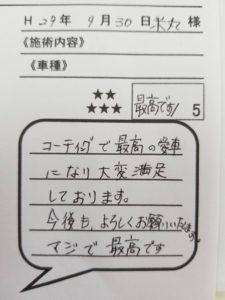 H 29年 9月30日 米丸 様
《施術内容》
《車種》
★★
★★★
最高です! 5
コーティングで最高の愛車
になり大変満足
しております。
今後も、よろしくお願いいたします。
マジで最高です